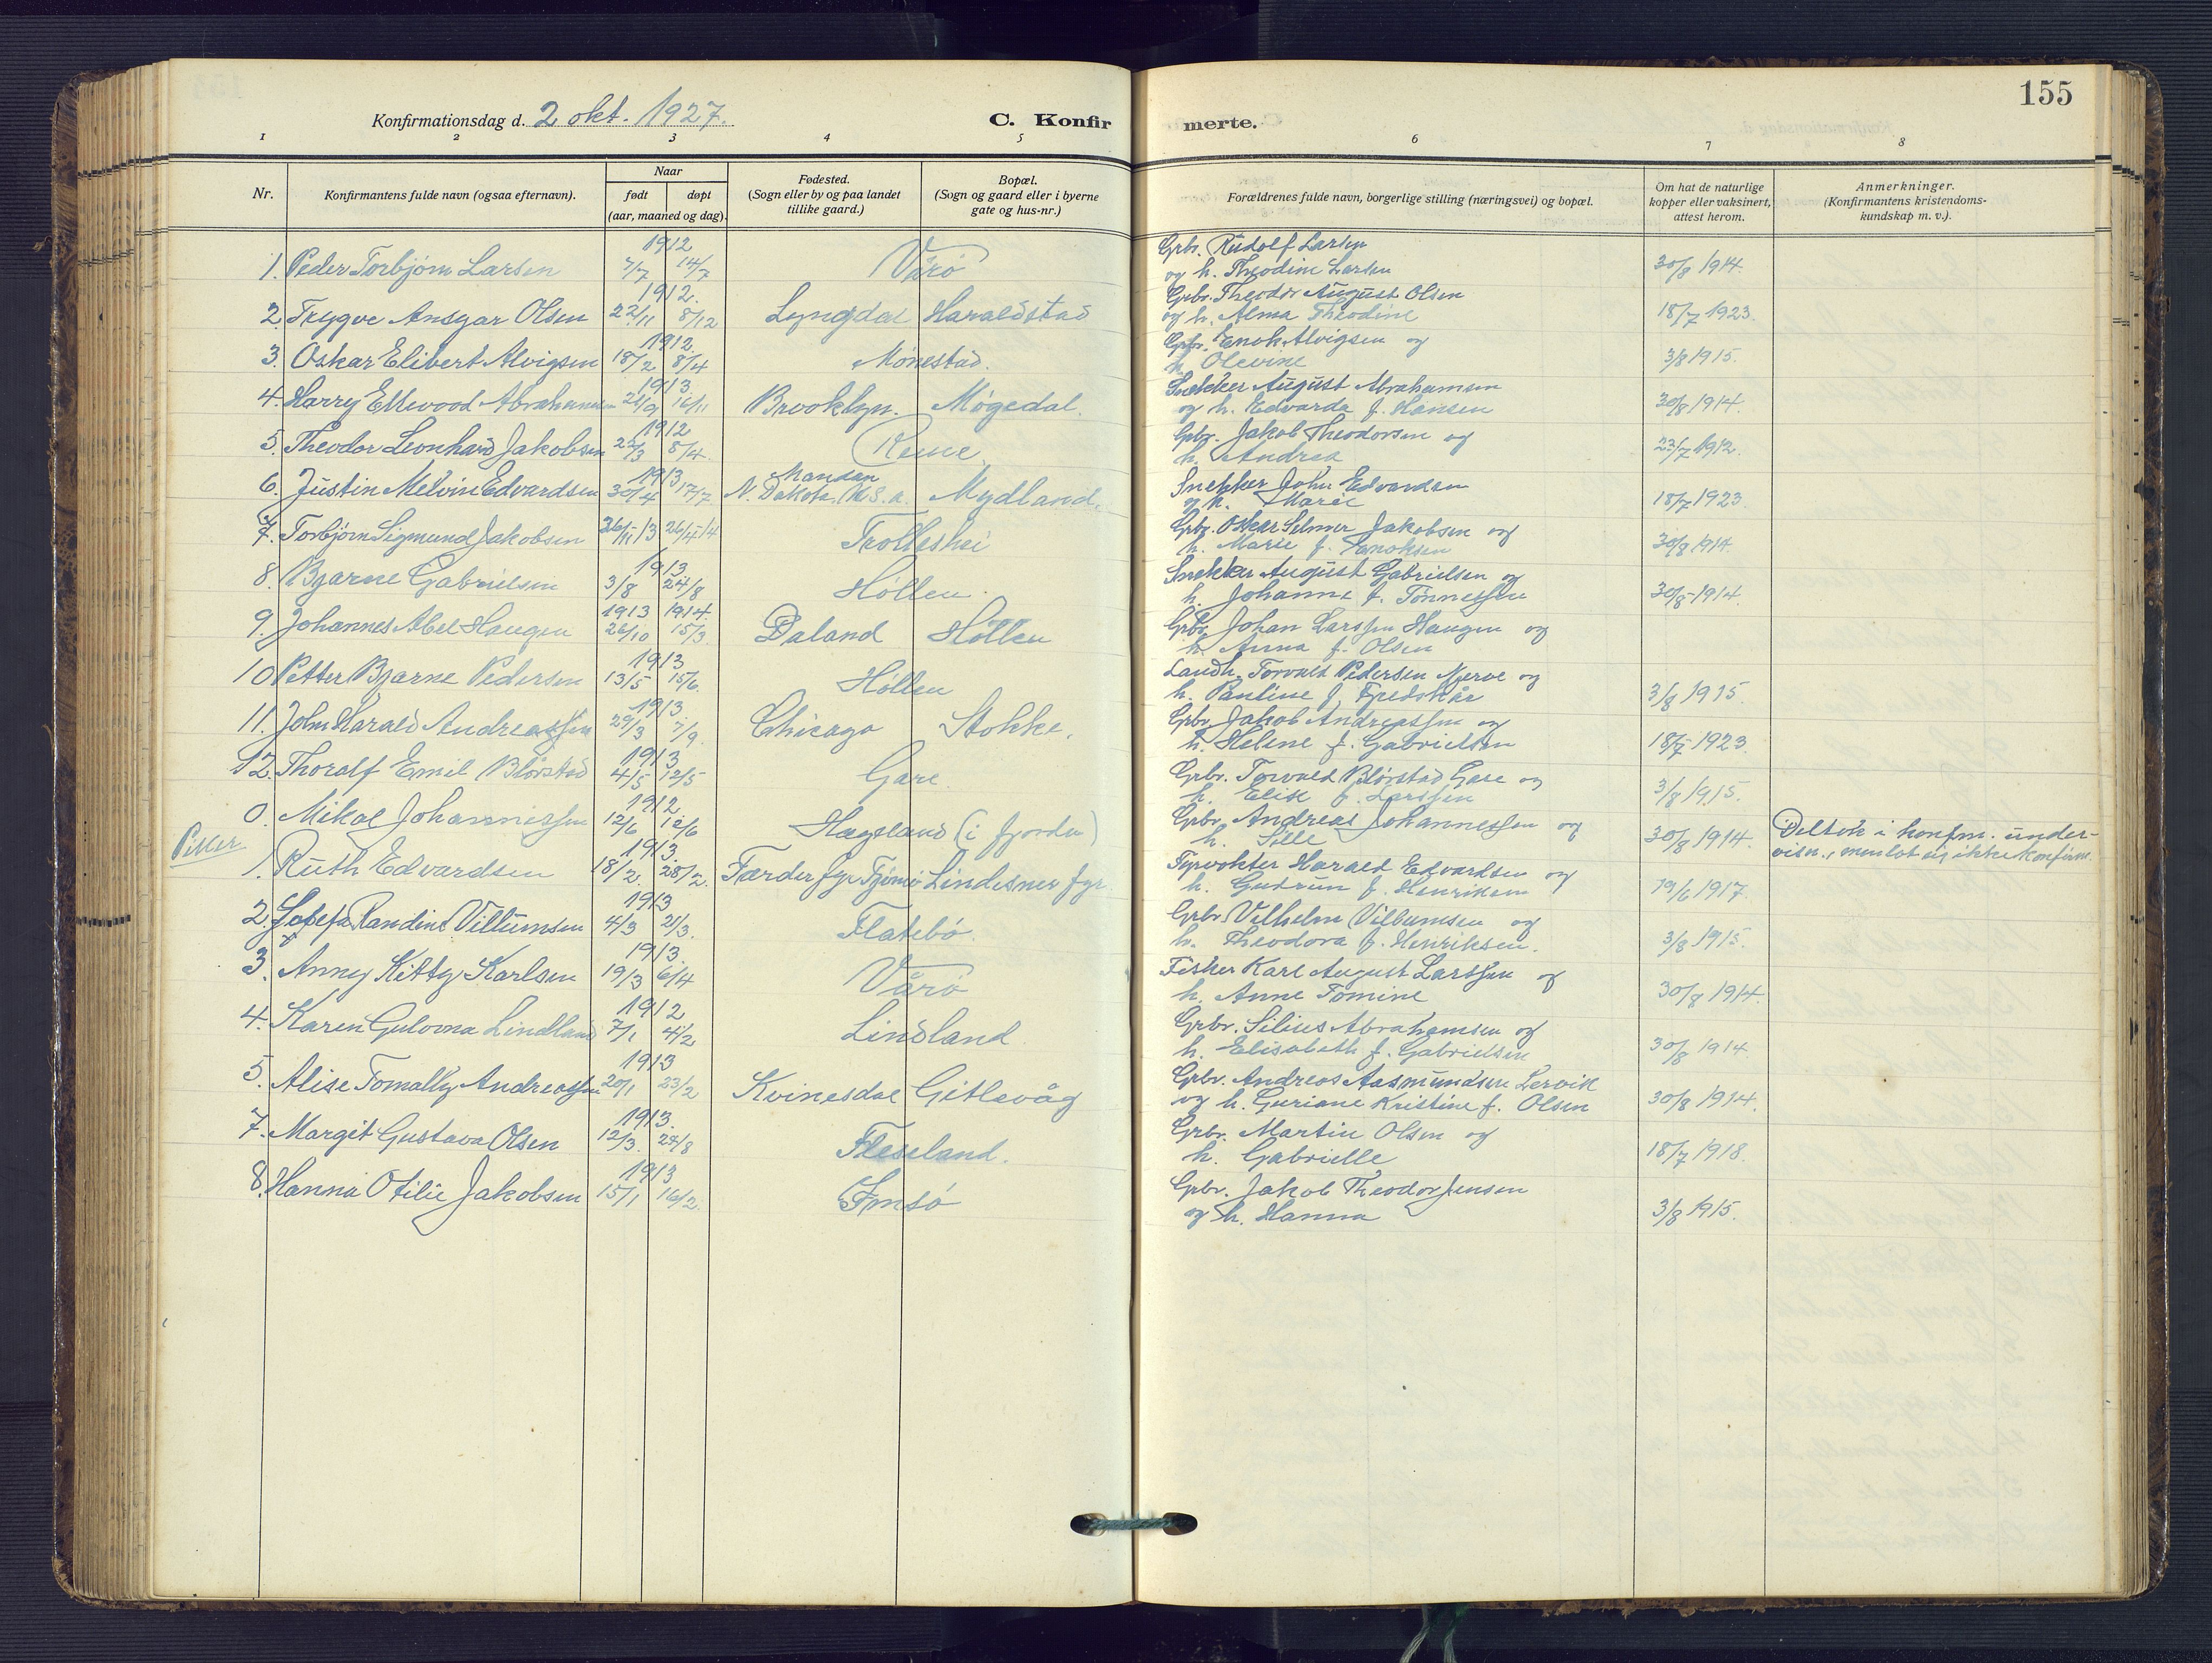 155
Konfirmationsdag d. 2 okt. 1927.
C. Konfir merte.
1 2 3 4 5 6 7 8
Nr.
Konfirmantens fulde navn (ogsaa efternavn).
Naar
født døpt
(aar, maaned og dag).
Fødested.
(Sogn eller by og paa landet
tillike gaard.)
Bopæl.
(Sogn og gaard eller i byerne
gate og hus-nr.)
Forældrenes fulde navn, borgerlige stilling (næringsvei) og bopæl.
Om hat de naturlige
kopper eller vaksinert,
attest herom.
Anmerkninger.
(Konfirmantens kristendoms-
kundskap m. v.).
1912 Grbr. Rudolf Larsen
1. Peder Torbjørn Larsen 7/7 14/7 Vårø og h. Theodine Larsen 30/8 1914.
1912. Grbr. Theodor August Olsen
2. Trygve Ansgar Olsen 22/11 8/12 Lyngdal Haraldstad og h. Alma Theodine 18/7 1923.
1912. Grbr. Enok Alvigsen og
3. Oskar Elibert Alvigsen 18/2 8/4 Mønestad. h. Olevine 3/8 1915.
1913 Snekker August Abrahamsen
4. Harry Ellwood Abrahamsen 21/9 16/11 Brooklyn. Møgedal. og h. Edvarda f. Hansen 30/8 1914.
1912 Grbr. Jakob Theodorsen og
5. Theodor Leonhard Jakobsen 22/3 8/4. Reme. h. Andrea 23/7 1912.
1913 Mandan Snekker John Edvardsen
6. Justin Melvin Edvardsen 30/4 17/7 N. Dakota. U.S.a. Mydland. og h. Marie 18/7 1923
7. Torbjørn Sigmund Jakobsen 26/11-13 26/4-14 Trolleshei Grbr. Oskar Selmer Jakobsen og
h. Marie f. Enoksen 30/8 1914.
1913 Snekker August Gabrielsen og
8. Bjarne Gabrielsen 3/8 24/8 Höllen. h. Johanne f. Tønnessen 30/8-1914.
1913 1914. Grbr. Johan Larssen Haugen og
9. Johannes Abel Haugen 26/10 15/3. Daland Höllen h. Anna f. Olsen
1913 Landh. Torvald Pedersen Njerve og
10 Petter Bjarne Pedersen 13/5 15/6. Höllen h. Pauline f. Fredskår 3/8 1915.
1913. Grbr. Jakob Andreassen og
11. John Harald Andreassen 29/3 7/9. Chicago Stokke. h. Helene f. Gabrielsen 18/7 1923.
1913 Grbr. Torvald Blörstad Gare og
12. Thoralf Emil Blörstad 4/5 12/5 Gare h. Elise f. Larssen 3/8 1915.
1912. Grbr. Andreas Johannessen og
0. Mikal Johannessen 12/6 12/6 Hageland (i fjorden) h. Sille 30/8 1914. Deltok i konfm. under-
visn., men lot sig ikke konfirm.
Piker 1913. Fyrvokter Harald Edvardsen og
1. Ruth Edvardsen 18/2. 28/2. Færder fyr Tjømø Lindesnes fyr h. Gudrun f. Henriksen 19/6 1917.
1913 Grbr. Vilhelm Villumsen og
2. Josefa Randine Villumsen 4/3 21/3. Flatebö. h. Theodora f. Henriksen. 3/8 1915.
1913. Fisker Karl August Larssen og
3. Anny Kitty Karlsen 19/3 6/4 Vårö h. Anne Tomine 30/8 1914.
1912 Grbr. Silius Abrahamsen og
4. Karen Gulovna Lindland 7/1 4/2 Lindland h. Elisabeth f. Gabrielsen 30/8 1914.
1913 Grbr. Andreas Aasmundsen Lervik
5. Alise Tomally Andreassen 20/1 23/2 Kvinesdal Gitlevåg og h. Guriane Kristine f. Olsen 30/8 1914.
1913. Grbr. Martin Olsen og
7. Margit Gustava Olsen 12/3. 24/8 Fleseland. h. Gabrielle 18/7 1918.
1913 Grbr. Jakob Theodor Jensen
8. Hanna Otilie Jakobsen 15/1 16/2. Imsö og h. Hanna 3/8 1915.